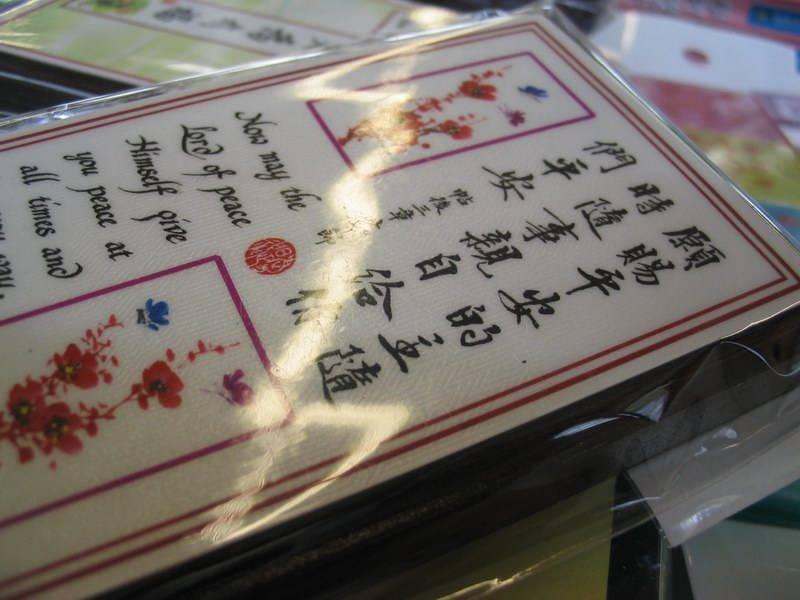 願賜平安的主隨
時隨事親自給你
們平安
帖後三章節
Now may the
Lord of peace
Himself give
you peace at
all times and
way.